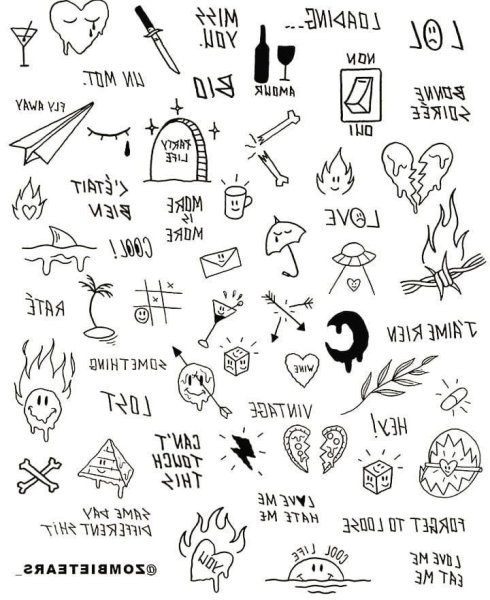 MISS
YOU.
LOADING...
LOL
NON
OUI
UN MOT.
AMOUR
BONNE
SOIRÉE
FLY AWAY
PARTY
LIFE
C'ÉTAIT
BIEN
MORE
IS
MORE
LOVE
COOL!
RATÉ
J'AIME RIEN
SOMETHING
WINE
LOST
VINTAGE
HEY!
CAN'T
TOUCH
THIS
LOVE ME
HATE ME
FORGET TO LOOSE
SAME DAY
DIFFERENT SHIT
COOL LIFE
LOVE ME
EAT ME
@ZOMBIETEARS_